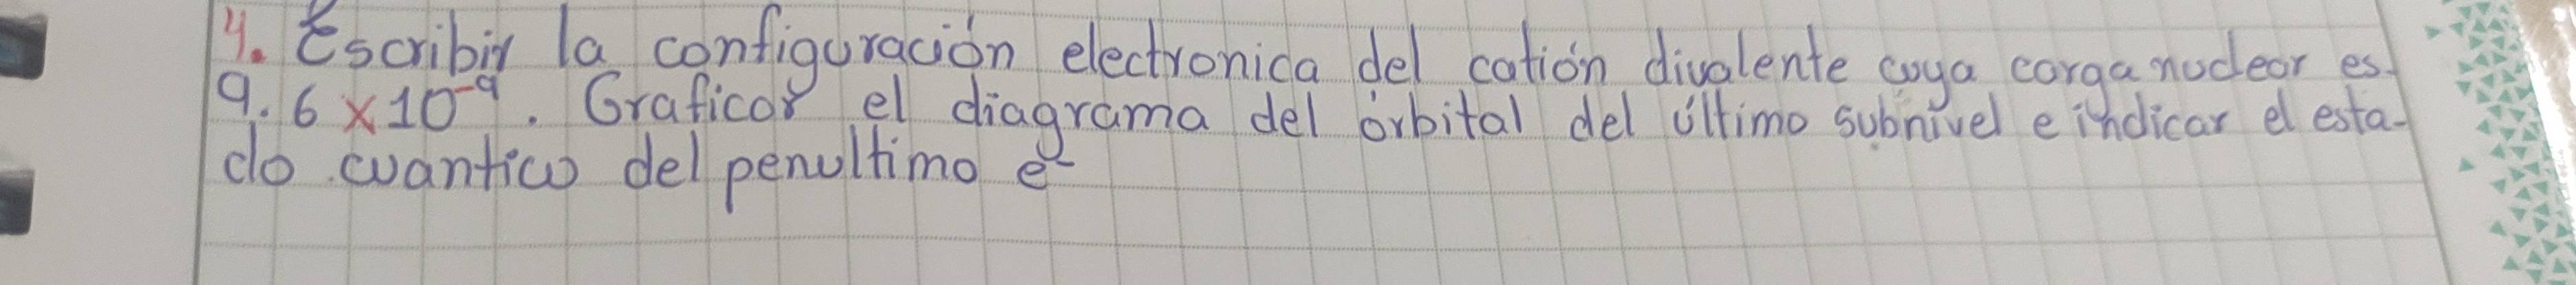 4. Escribir la configuración electronica del catión divalente cuya carga nuclear es
9.6 x 10⁻⁹. Graficar el diagrama del órbital del último subnivel e indicar el esta-
do cuantico del penultimo e⁻